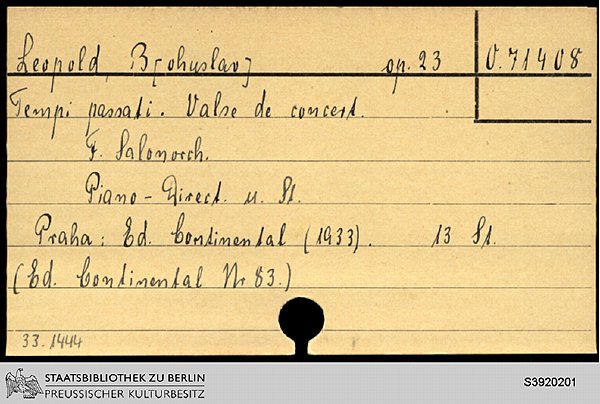 Leopold, B[ohuslav] op. 23 O.71408
Tempi passati. Valse de concert.
F. Salonorch.
Piano-Direct. u. St.
Praha: Ed. Continental (1933). 13 St.
(Ed. Continental Nr 83.)
33.1444
STAATSBIBLIOTHEK ZU BERLIN
PREUSSISCHER KULTURBESITZ
S3920201